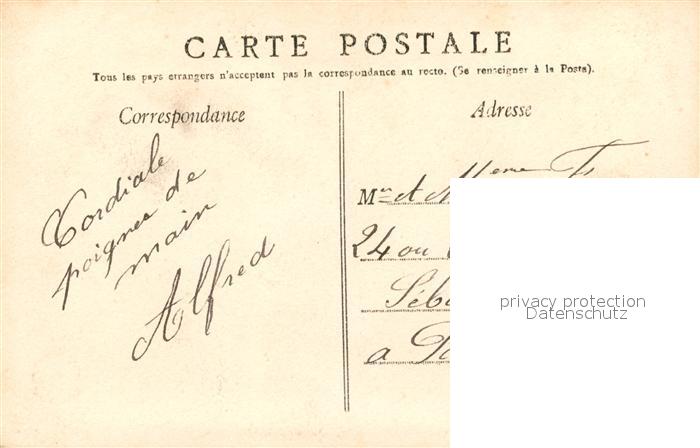 CARTE POSTALE
Tous les pays etrangers n'acceptent pas la correspondance au recto. (Se renseigner à la Poste).
Correspondance
Adresse
Cordiale
poignee de
main
Alfred
Mr et
24 ou
a
privacy protection
Datenschutz